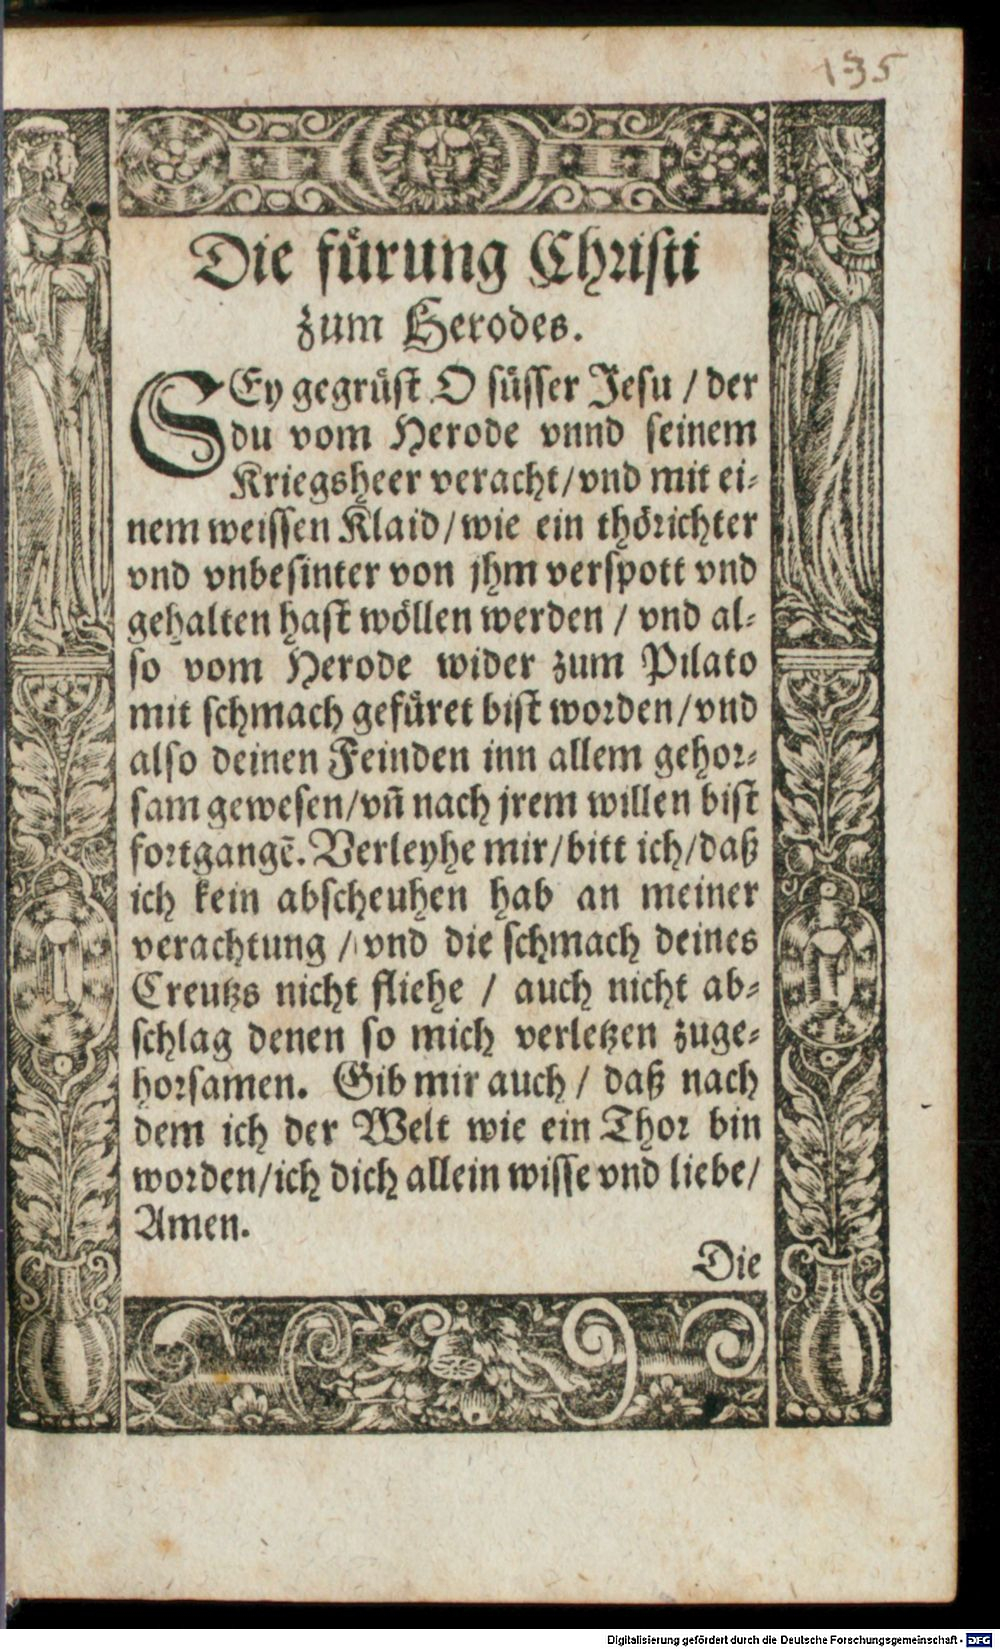 135
Die fuͤrung Chriſti
zum Herodes.
SEy gegruͤſt O ſuͤſſer Jeſu / der
du vom Herode vnnd ſeinem
Kriegsheer veracht/vnd mit ei⸗
nem weiſſen Klaid/wie ein thoͤrichter
vnd vnbeſinter von jhm verſpott vnd
gehalten haſt woͤllen werden / vnd al⸗
ſo vom Herode wider zum Pilato
mit ſchmach gefuͤret biſt worden/vnd
alſo deinen Feinden inn allem gehor⸗
ſam gewesen/vñ nach jrem willen biſt
fortgangē. Verleyhe mir/bitt ich/daß
ich kein abſcheuhen hab an meiner
verachtung / vnd die ſchmach deines
Creutzs nicht fliehe / auch nicht ab⸗
ſchlag denen ſo mich verletzen zuge⸗
horſamen. Gib mir auch / daß nach
dem ich der Welt wie ein Thor bin
worden/ich dich allein wiſſe vnd liebe/
Amen.
Die
Digitalisierung gefördert durch die Deutsche Forschungsgemeinschaft - DFG